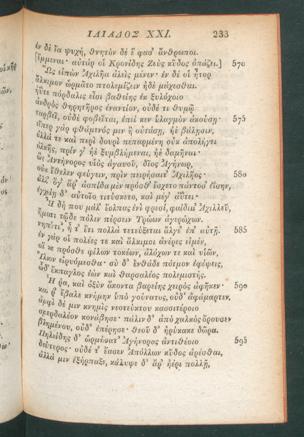 ΙΛΙΑΔΟΣ ΧΧΙ. 233
ἐν δὲ ἴα ψυχὴ, θνητὸν δέ ἑ φασ' ἄνθρωποι
[ἔμμεναι· αὐτάρ οἱ Κρονίδης Ζεὺς κῦδος ὀπάζει.] 570
Ὣς εἰπὼν Ἀχιλῆα ἀλεὶς μένεν· ἐν δέ οἱ ἦτορ
ἄλκιμον ὡρμᾶτο πτολεμίζειν ἠδὲ μάχεσθαι.
ἠΰτε πόρδαλις εἶσι βαθείης ἐκ ξυλόχοιο
ἀνδρὸς θηρητῆρος ἐναντίον, οὐδέ τι θυμῷ
ταρβεῖ, οὐδὲ φοβεῖται, ἐπεί κεν ὑλαγμὸν ἀκούσῃ· 575
εἴπερ γὰρ φθάμενός μιν ἢ οὐτάσῃ, ἠὲ βάλῃσιν,
ἀλλά τε καὶ περὶ δουρὶ πεπαρμένη οὐκ ἀπολήγει
ἀλκῆς, πρίν γ' ἠὲ ξυμβλήμεναι, ἠὲ δαμῆναι·
ὣς Ἀντήνορος υἱὸς ἀγαυοῦ, δῖος Ἀγήνωρ,
οὐκ ἔθελεν φεύγειν, πρὶν πειρήσαιτ' Ἀχιλῆος· 580
ἀλλ' ὅγ' ἄρ' ἀσπίδα μὲν πρόσθ' ἔσχετο πάντοσ' ἐΐσην,
ἐγχείῃ δ' αὐτοῖο τιτύσκετο, καὶ μέγ' ἀΰτει·
Ἦ δή που μάλ' ἔολπας ἐνὶ φρεσὶ, φαίδιμ' Ἀχιλλεῦ,
ἤματι τῷδε πόλιν πέρσειν Τρώων ἀγερώχων.
νηπύτι', ἦ τ' ἔτι πολλὰ τετεύξεται ἄλγε' ἐπ' αὐτῇ. 585
ἐν γάρ οἱ πολέες τε καὶ ἄλκιμοι ἀνέρες εἰμὲν,
οἵ κε πρόσθε φίλων τοκέων, ἀλόχων τε καὶ υἱῶν,
Ἴλιον εἰρυόμεσθα· σὺ δ' ἐνθάδε πότμον ἐφέψεις,
ὧδ' ἔκπαγλος ἐὼν καὶ θαρσαλέος πολεμιστής.
Ἦ ῥα, καὶ ὀξὺν ἄκοντα βαρείης χειρὸς ἀφῆκεν· 590
καί ῥ' ἔβαλε κνήμην ὑπὸ γούνατος, οὐδ' ἀφάμαρτεν.
ἀμφὶ δέ μιν κνημὶς νεοτεύκτου κασσιτέροιο
σμερδαλέον κονάβησε· πάλιν δ' ἀπὸ χαλκὸς ὄρουσεν
βλημένου, οὐδ' ἐπέρησε· θεοῦ δ' ἠρύκακε δῶρα.
Πηλείδης δ' ὡρμήσατ' Ἀγήνορος ἀντιθέοιο 595
δεύτερος· οὐδέ τ' ἔασεν Ἀπόλλων κῦδος ἀρέσθαι,
ἀλλά μιν ἐξήρπαξε, κάλυψε δ' ἄρ' ἠέρι πολλῇ,